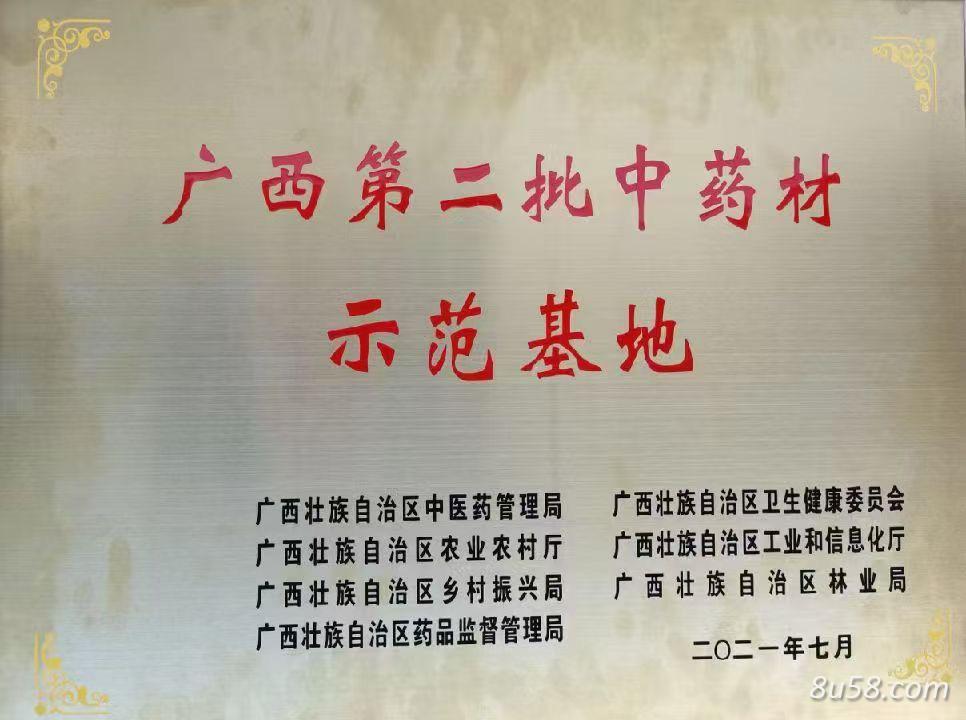 广西第二批中药材
示范基地
广西壮族自治区中医药管理局
广西壮族自治区农业农村厅
广西壮族自治区乡村振兴局
广西壮族自治区药品监督管理局
广西壮族自治区卫生健康委员会
广西壮族自治区工业和信息化厅
广西壮族自治区林业局
二〇二一年七月
8u58.com